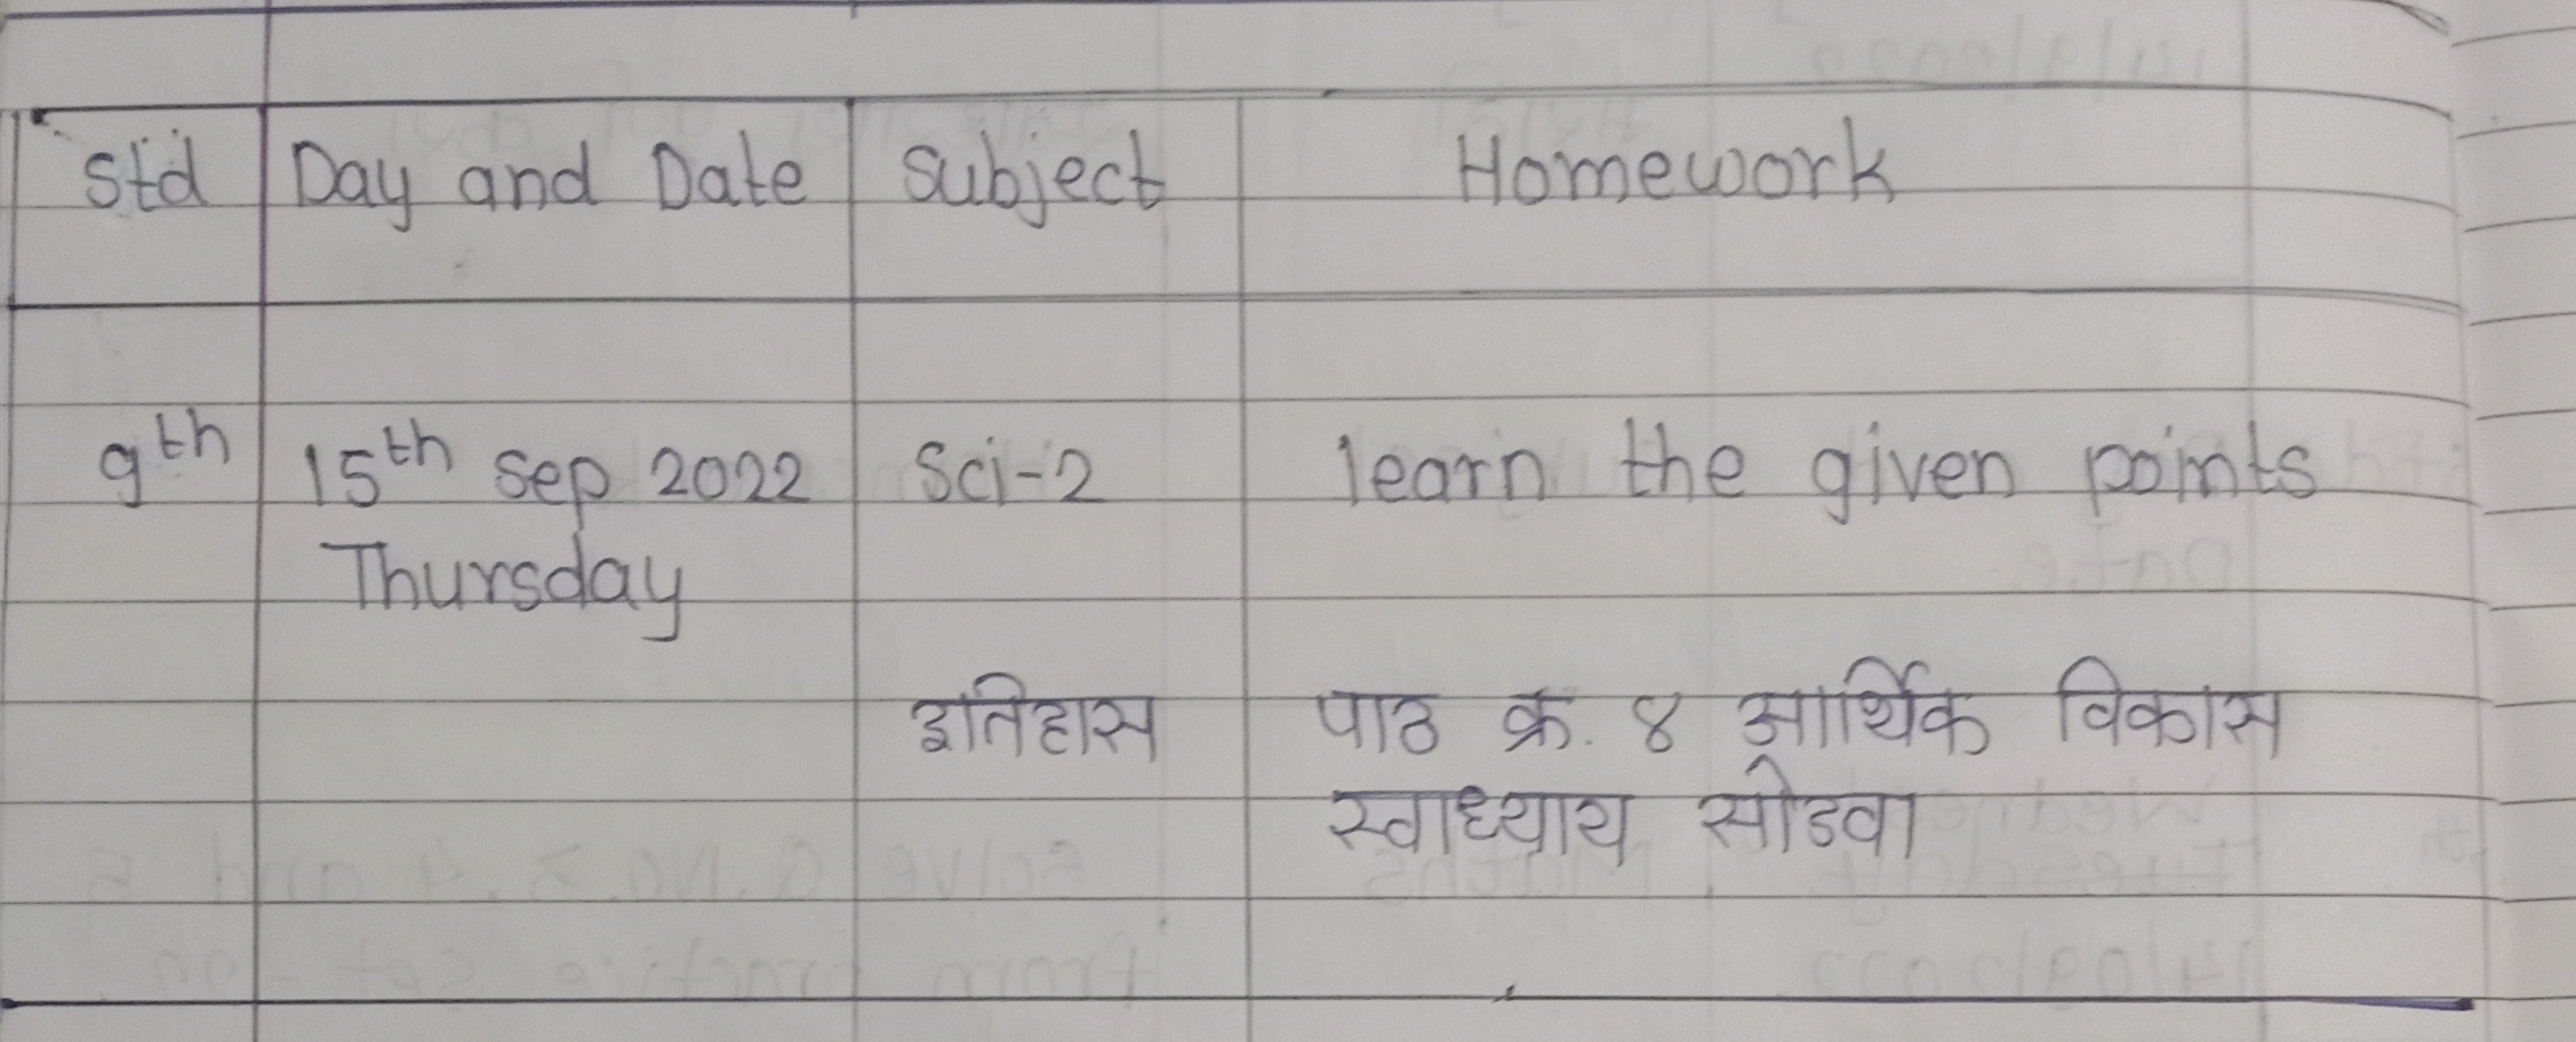 Std Day and Date Subject Homework
9th 15th Sep 2022 Sci-2 learn the given points
Thursday
इतिहास पाठ क्र. ४ आर्थिक विकास
स्वाध्याय सोडवा